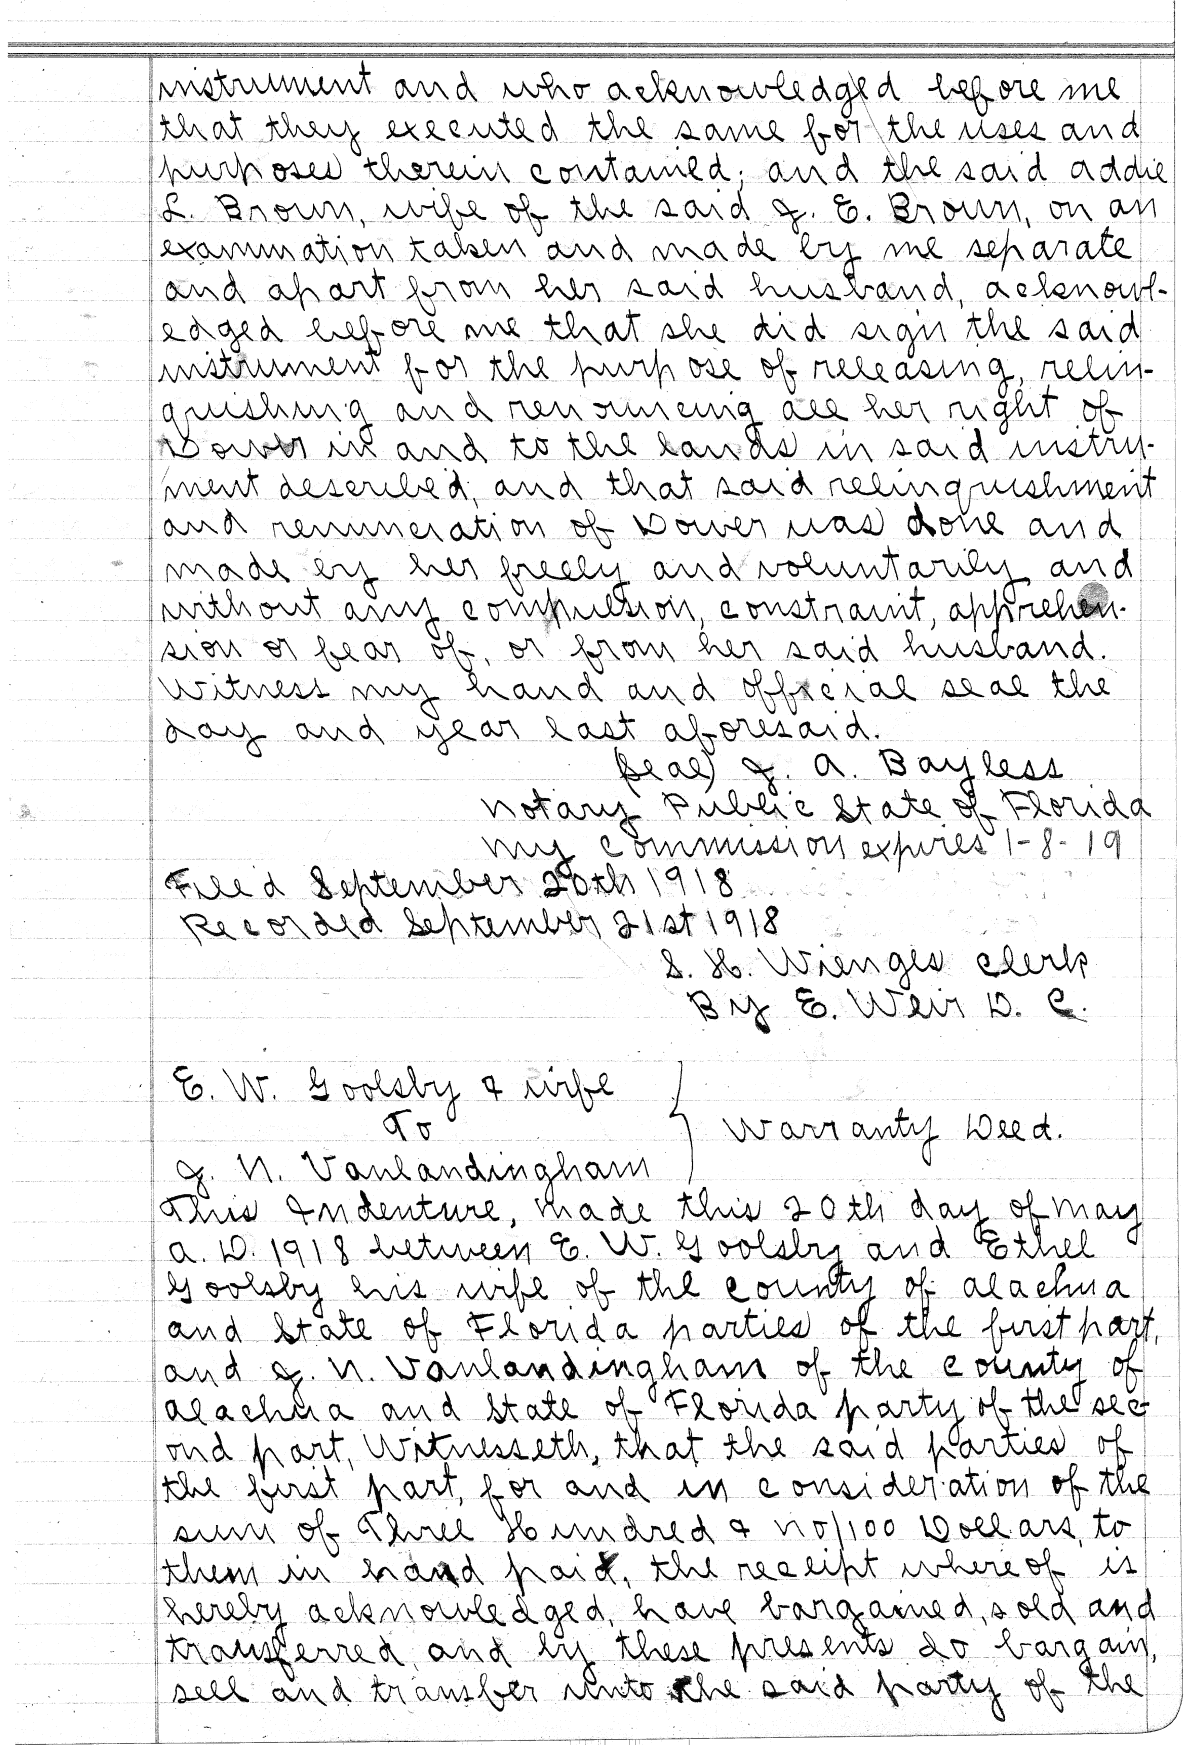 instrument and who acknowledged before me
that they executed the same for the uses and
purposes therein contained; and the said Addie
L. Brown, wife of the said J. E. Brown, on an
examination taken and made by me separate
and apart from her said husband, acknowl-
edged before me that she did sign the said
instrument for the purpose of releasing, relin-
quishing and renouncing all her right of
Dower in and to the lands in said instru-
ment described, and that said relinquishment
and renunciation of Dower was done and
made by her freely and voluntarily and
without any compulsion, constraint, apprehen-
sion or fear of, or from her said husband.
Witness my hand and official seal the
day and year last aforesaid.
(Seal) J. A. Bayless
Notary Public State of Florida
My commission expires 1-8-19
Filed September 20th 1918
Recorded September 21st 1918
S. H. Wienges Clerk
By E. Weir D. C.
E. W. Goolsby & wife
To
Warranty Deed.
J. N. Vanlandingham
This Indenture, made this 20th day of May
A. D. 1918 between E. W. Goolsby and Ethel
Goolsby his wife of the county of Alachua
and State of Florida parties of the first part,
and J. N. Vanlandingham of the county of
Alachua and State of Florida party of the sec
ond part, Witnesseth, that the said parties of
the first part, for and in consideration of the
sum of Three Hundred & no/100 Dollars, to
them in hand paid, the receipt whereof is
hereby acknowledged, have bargained, sold and
transferred, and by these presents do bargain,
sell and transfer unto the said party of the